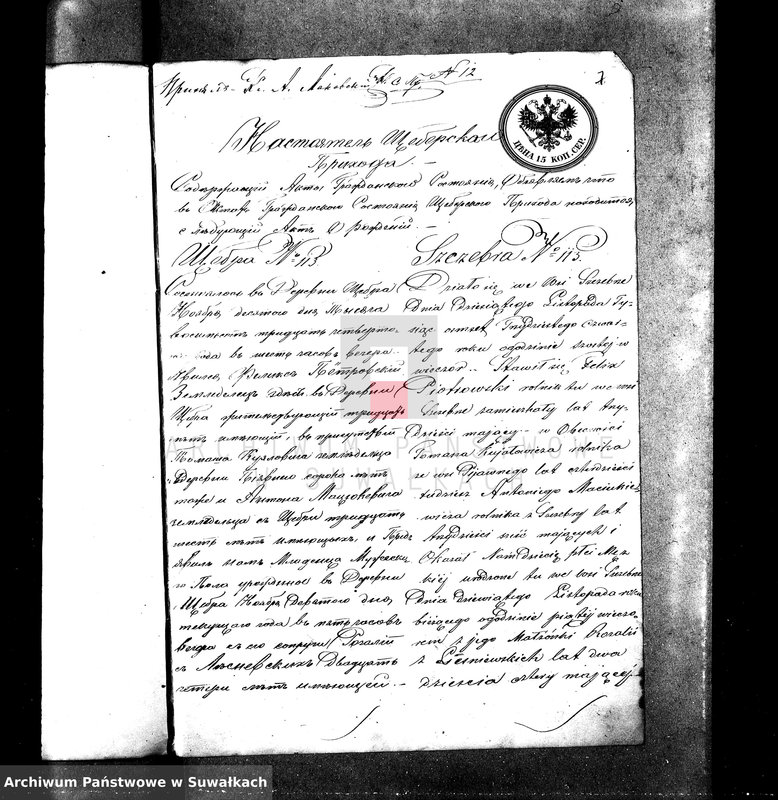 А. Маковскій № 12
7
ЦѢНА 15 КОП. СЕР.
Настоятель Щебрскаго
Прихода. —
Содержащій Акты Гражданскаго Состоянія, Объявляетъ что
въ Гражданскаго Состоянія Щебрскаго Прихода находится
слѣдующій Актъ о рожденіи. —
Щебра № 113
Состоялось въ Деревни Щебра
Ноября десятаго дня Тысяча
восемьсотъ тридцать четверта-
го года въ шесть часовъ вечера.
Явился Феликсъ Піотровскій
Земледѣлецъ здѣсь въ Деревни
Щебра жительствующій тридцать
лѣтъ имѣющій, въ присутствіи
Томаша земледѣльца
Деревни сорока лѣтъ
также и Антона Мацюкевича
земледѣльца съ Щебры тридцать
шесть лѣтъ имѣющихъ, и Пред-
явилъ намъ Младенца Мужеска-
го Пола урожденное въ Деревни
Щебра Ноября Девятаго дня,
текущаго года въ пять часовъ
вечера съ его супруги Розаліи
съ Двадцать
четыре лѣтъ имѣющей. —
Szczebra № 113.
Działo się we wsi Szczebrze
Dnia Dziesiątego Listopada Ty-
siąc ośmset Trzydziestego Czwar-
tego roku ogodzinie szóstej w
wieczór. Stawił się Felix
Piotrowski rolnik tu we wsi
Szczebrze zamieszkały lat Trzy-
dzieści mający w Obecności
Tomasza rolnika
ze wsi lat czterdzieści
tudzież Antoniego Maciukie-
wicza rolnika z Szczebry lat
trzydzieści sześć mających i
Okazał Nam Dziecię płci Męz-
kiej urodzone tu we wsi Szczebrze
Dnia Dziewiątego Listopada roku
bieżącego ogodzinie piątej wieczo-
rem z jego Małżonki Rozalii
z Leśniewskich lat dwa-
dzieścia cztery mającej
ARCHIWUM PAŃSTWOWE
SUWAŁKACH
Archiwum Państwowe w Suwałkach